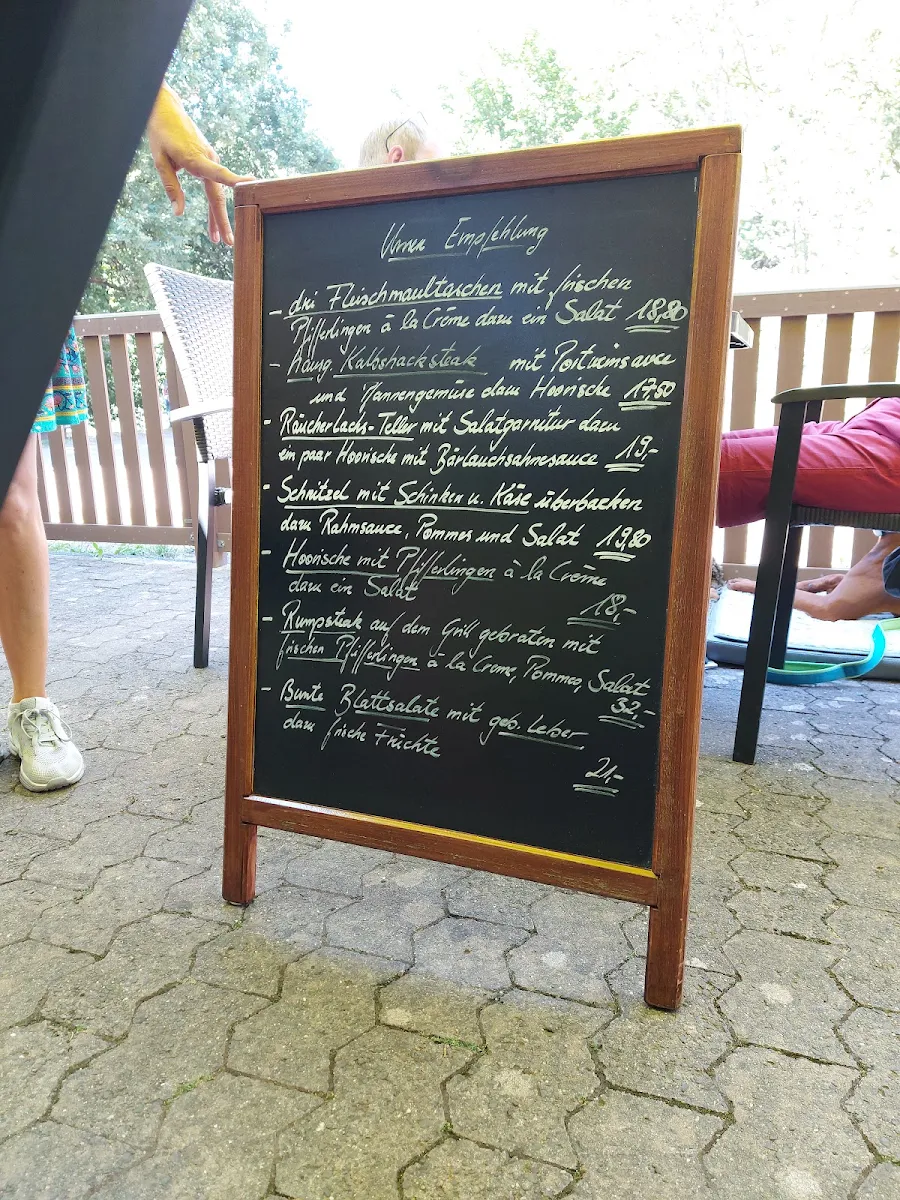 Unsere Empfehlung
- drei Fleischmaultaschen mit frischen
Pfifferlingen à la Crème dazu ein Salat 18,80
- hausg. Kalbshacksteak mit Portweinsauce
und Pfannengemüse dazu Hoorische 17,50
- Räucherlachs-Teller mit Salatgarnitur dazu
ein paar Hoorische mit Bärlauchsahnesauce 19,-
- Schnitzel mit Schinken u. Käse überbacken
dazu Rahmsauce, Pommes und Salat 19,80
- Hoorische mit Pfifferlingen à la Crème
dazu ein Salat 18,-
- Rumpsteak auf dem Grill gebraten mit
frischen Pfifferlingen à la Creme, Pommes, Salat
32,-
- Bunte Blattsalate mit geb. Leber
dazu frische Früchte
21,-